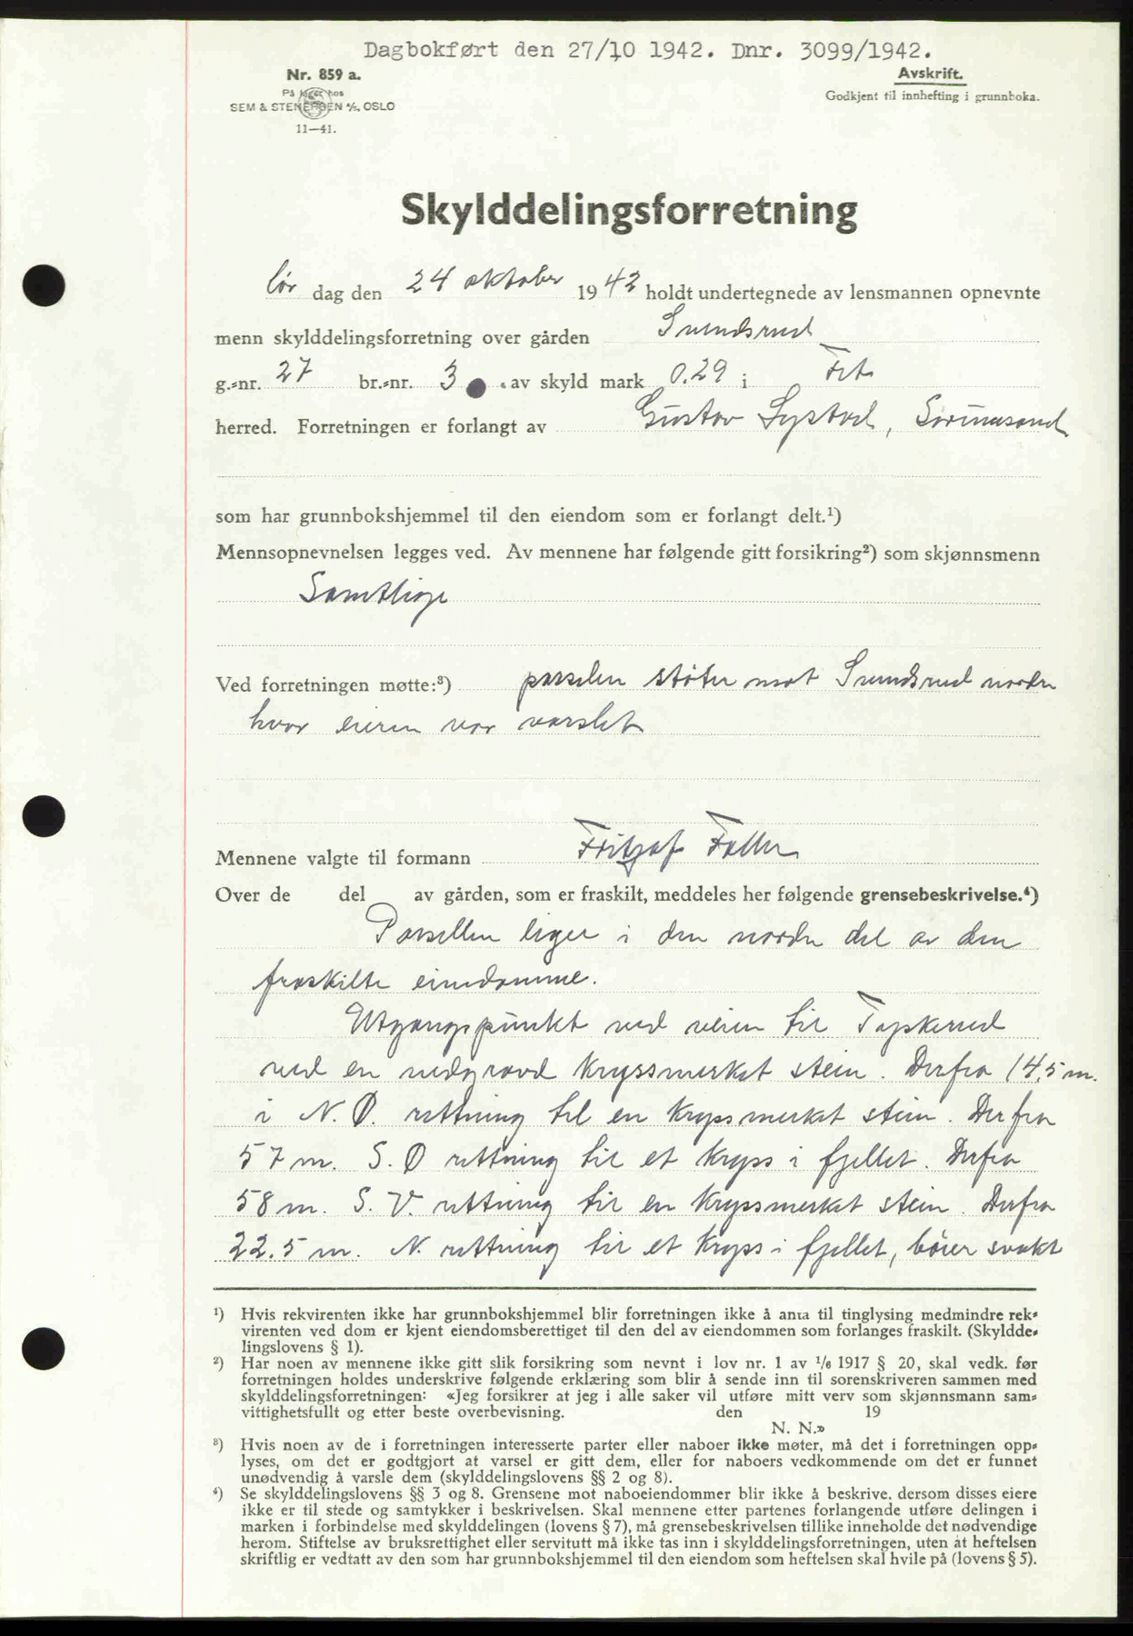 Dagbokført den 27/10 1942. Dnr. 3099/1942.
Nr. 859 a.
På lager hos
SEM & STENERSEN A/S, OSLO
11—41.
Avskrift.
Godkjent til innhefting i grunnboka.
Skylddelingsforretning
lør dag den 24 oktober 1942 holdt undertegnede av lensmannen opnevnte
menn skylddelingsforretning over gården Svendsrud
g.-nr. 27 br.-nr. 3 av skyld mark 0.29 i Fet
herred. Forretningen er forlangt av Gustav Systad, Sørumsand
som har grunnbokshjemmel til den eiendom som er forlangt delt.¹)
Mennsopnevnelsen legges ved. Av mennene har følgende gitt forsikring²) som skjønnsmenn
Samtlige
Ved forretningen møtte:³) parselen støter mot Svendsrud nordre
hvor eieren var varslet
Mennene valgte til formann Fritjof Faller
Over de del av gården, som er fraskilt, meddeles her følgende grensebeskrivelse.⁴)
Parsellen liger i den nordre del av den
fraskilte eiendomme.
Utgangspunkt ved veien til Tyskerud
ved en nedgravd kryssmerket stein. Derfra 14,5 m.
i N. Ø. rettning til en kryssmerket stein. Derfra
57 m. S. Ø rettning til et kryss i fjellet. Derfra
58 m. S. V. rettning til en kryssmerket stein. Derfra
22.5 m. N. rettning til et kryss i fjellet, bøier svakt
¹) Hvis rekvirenten ikke har grunnbokshjemmel blir forretningen ikke å anta til tinglysing medmindre rek-
virenten ved dom er kjent eiendomsberettiget til den del av eiendommen som forlanges fraskilt. (Skyldde-
lingslovens § 1).
²) Har noen av mennene ikke gitt slik forsikring som nevnt i lov nr. 1 av 1/6 1917 § 20, skal vedk. før
forretningen holdes underskrive følgende erklæring som blir å sende inn til sorenskriveren sammen med
skylddelingsforretningen: «Jeg forsikrer at jeg i alle saker vil utføre mitt verv som skjønnsmann sam-
vittighetsfullt og etter beste overbevisning. den 19
N. N.»
³) Hvis noen av de i forretningen interesserte parter eller naboer ikke møter, må det i forretningen opp-
lyses, om det er godtgjort at varsel er gitt dem, eller for naboers vedkommende om det er funnet
unødvendig å varsle dem (skylddelingslovens §§ 2 og 8).
⁴) Se skylddelingslovens §§ 3 og 8. Grensene mot naboeiendommer blir ikke å beskrive, dersom disses eiere
ikke er til stede og samtykker i beskrivelsen. Skal mennene etter partenes forlangende utføre delingen i
marken i forbindelse med skylddelingen (lovens § 7), må grensebeskrivelsen tillike inneholde det nødvendige
herom. Stiftelse av bruksrettighet eller servitutt må ikke tas inn i skylddelingsforretningen, uten at heftelsen
skriftlig er vedtatt av den som har grunnbokshjemmel til den eiendom som heftelsen skal hvile på (lovens § 5).